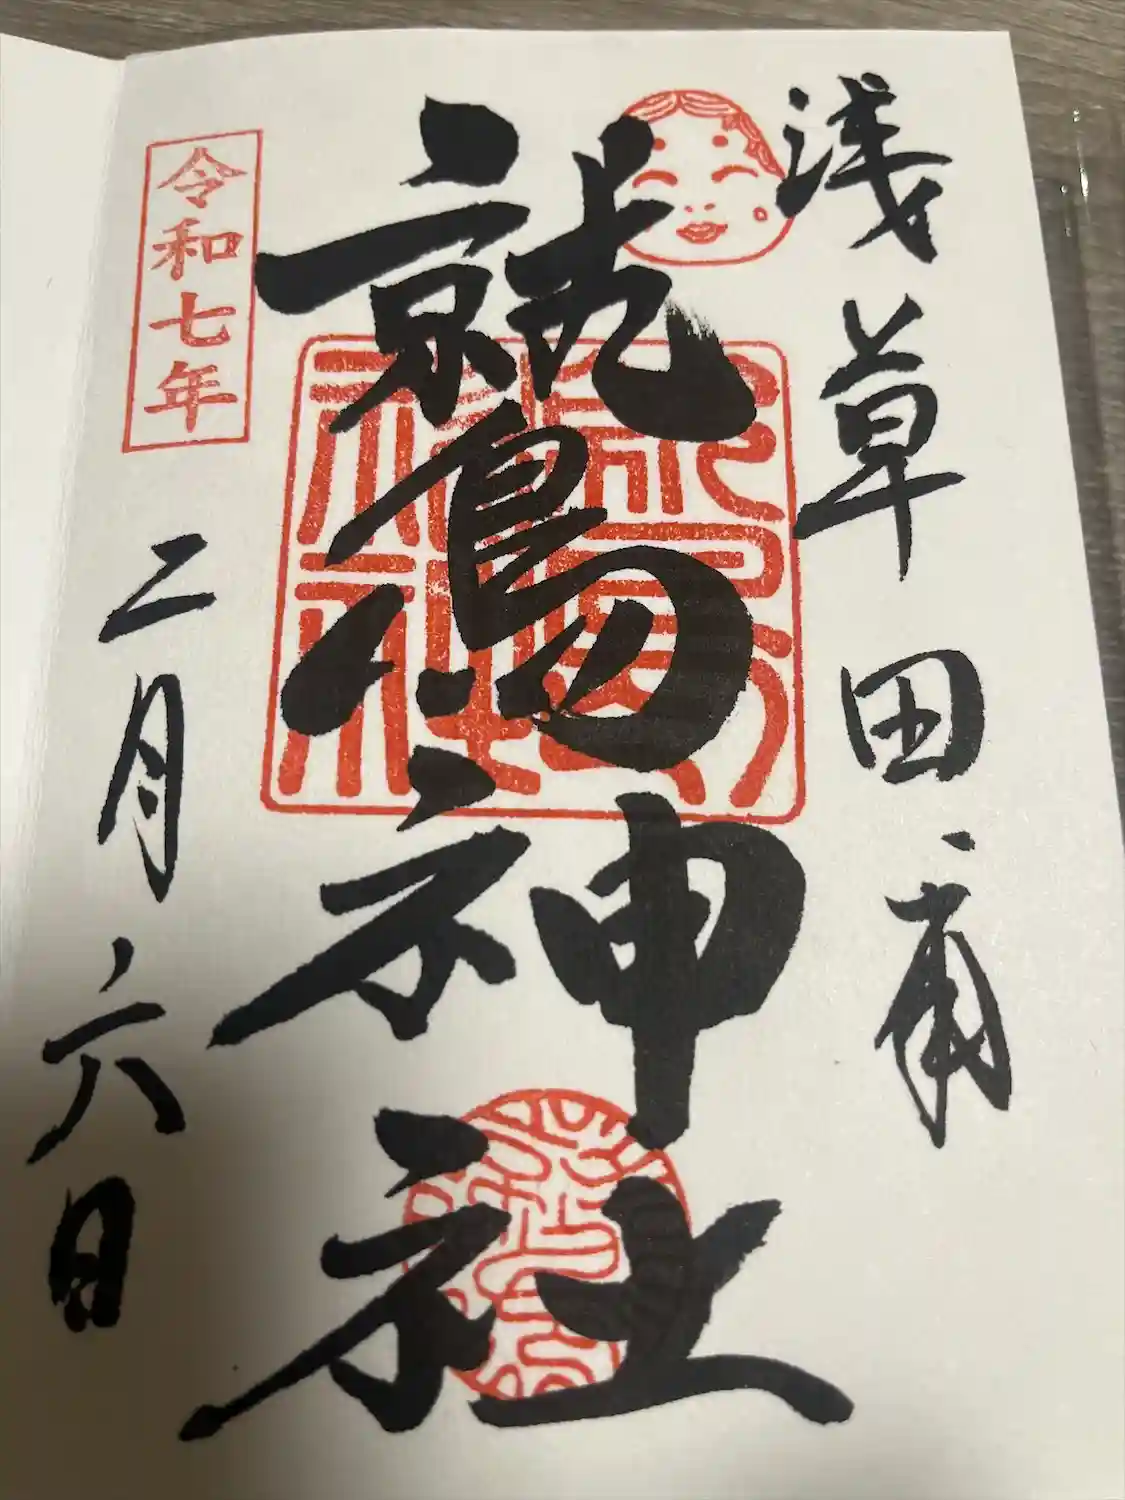 浅草田甫
鷲神社
令和七年
二月六日